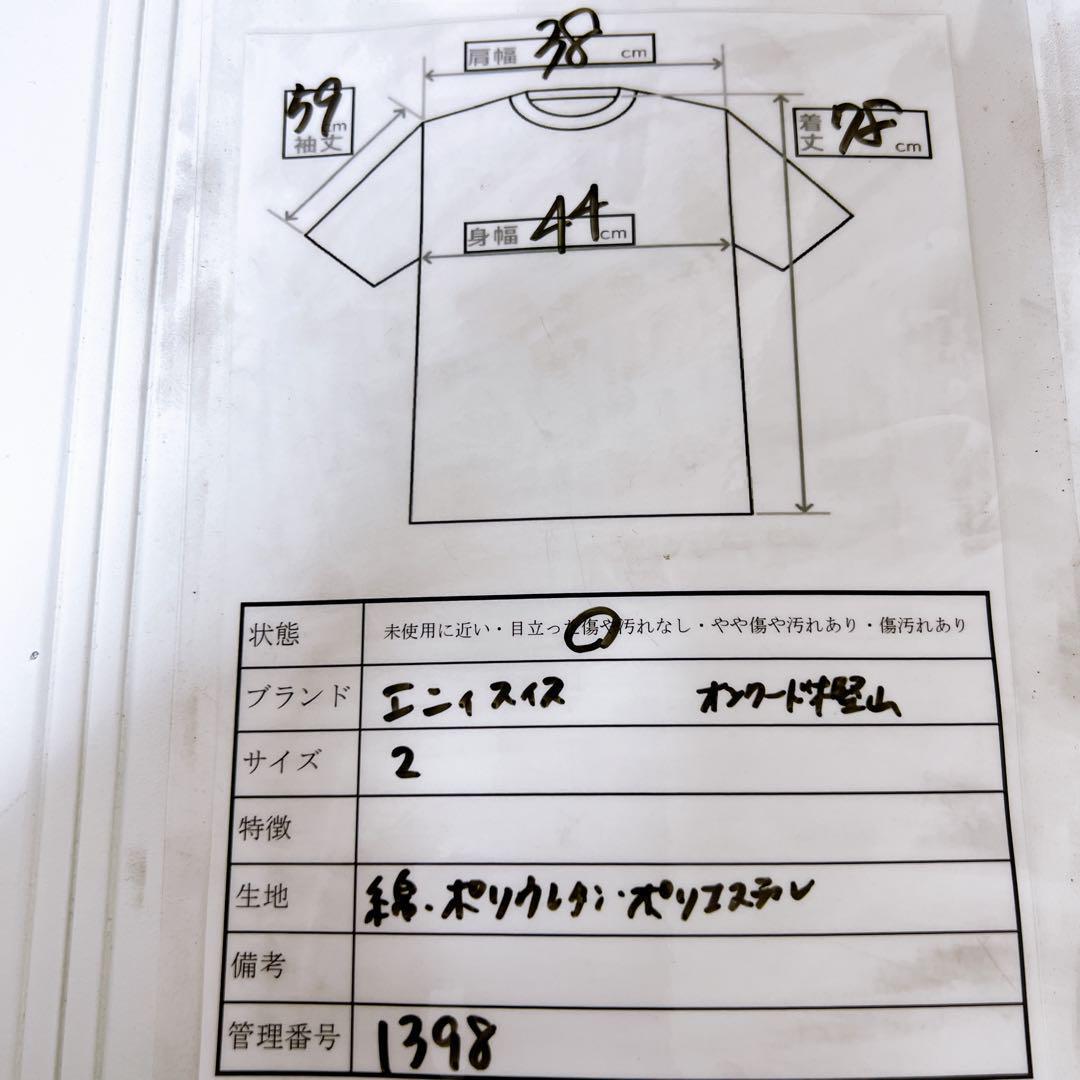 肩幅 38 cm
59 cm
袖丈
着丈 78 cm
身幅 44 cm
状態 未使用に近い・目立った傷や汚れなし・やや傷や汚れあり・傷汚れあり
ブランド エンイスイス オンワード樫山
サイズ 2
特徴
生地 綿・ポリウレタン・ポリエステル
備考
管理番号 1398